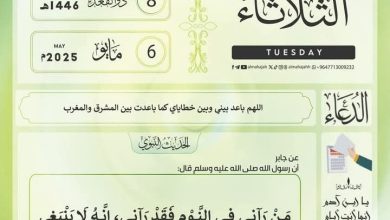 الثلاثاء
TUESDAY
8
ذو القعدة
1446هـ
6
MAY
مايو
2025م
almahajah
almahajahh
+9647713009232
الدُّعَاء
اللهم باعد بيني وبين خطاياي كما باعدت بين المشرق والمغرب
الحديث النبوي
عن جابر
أن رسول الله صلى الله عليه وسلم قال:
مَنْ رَآنِي فِي النَّوْمِ فَقَدْ رَآنِي، إِنَّهُ لَا يَنْبَغِي
يا ابن آدم